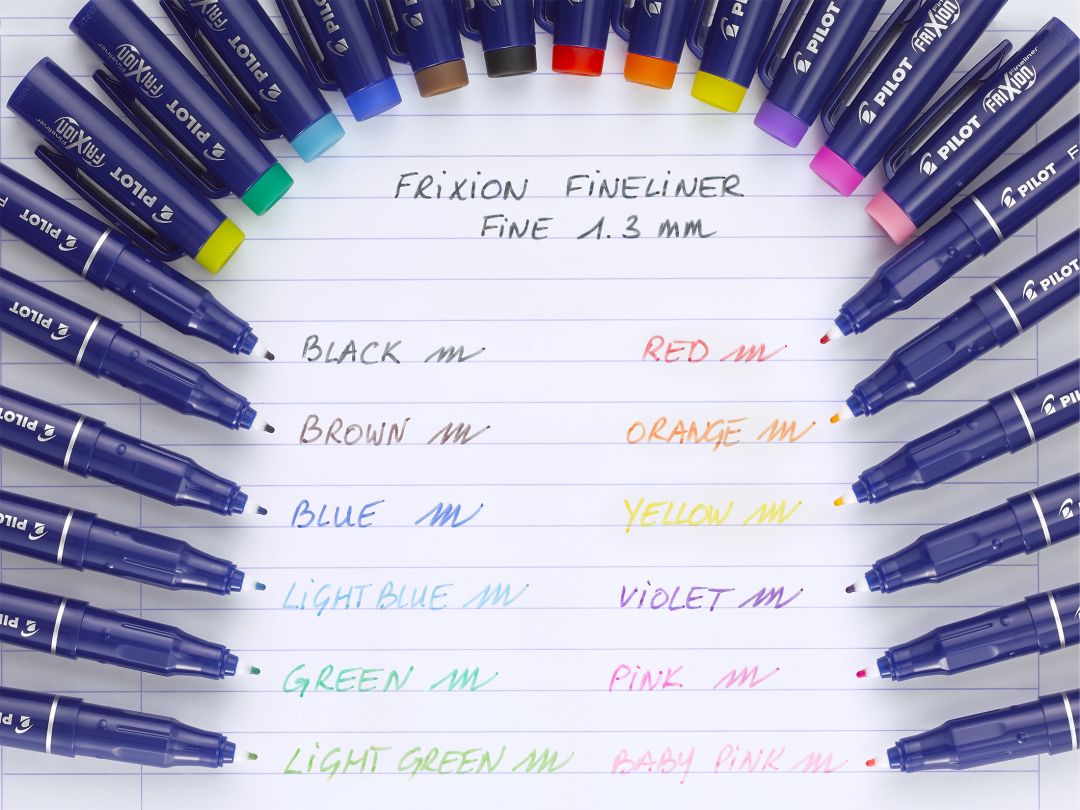 PILOT
PILOT
PILOT
PILOT
PILOT
FRIXION Fineliner
PILOT
FRIXION
PILOT
FRIXION Fineliner
PILOT
FRIXION Fineliner
PILOT
PILOT
PILOT
PILOT
PILOT
PILOT
PILOT
FRIXION FINELINER
FINE 1.3 mm
BLACK
RED
BROWN
ORANGE
BLUE
YELLOW
LIGHT BLUE
VIOLET
GREEN
PINK
LIGHT GREEN
BABY PINK